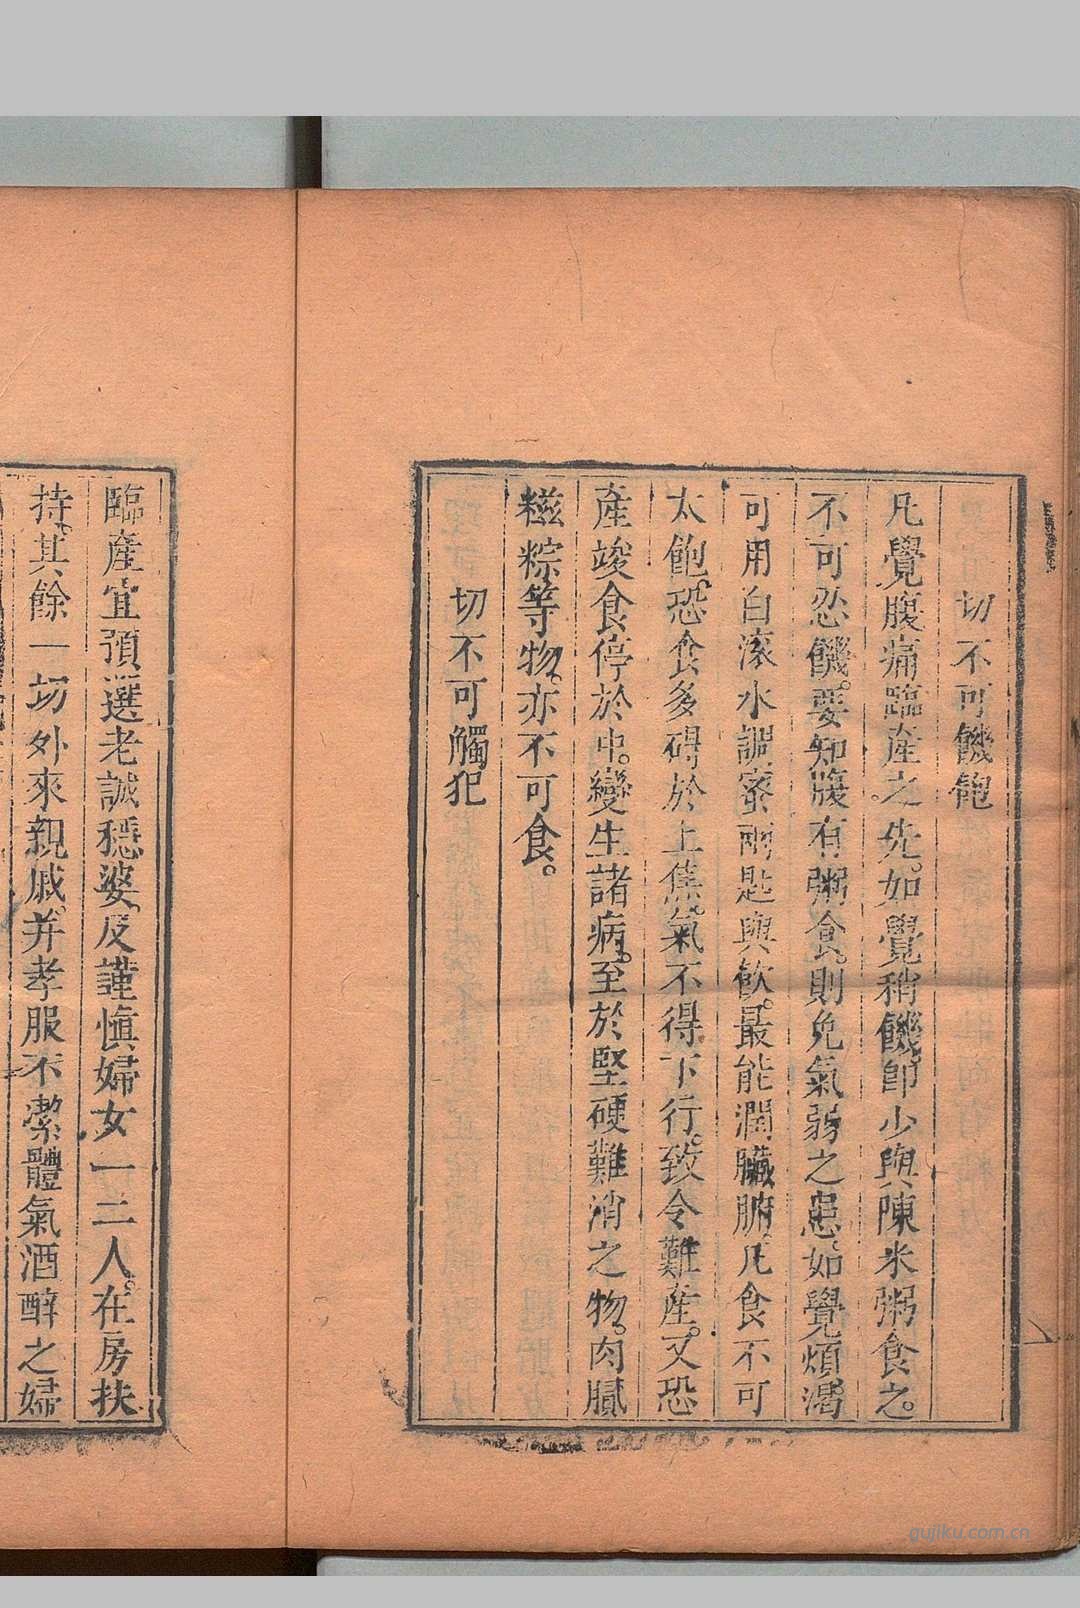 切不可饑飽
凡覺腹痛臨產之先。如覺稍饑。卽少與陳米粥食之。
不可忍饑。要知腹有粥食。則免氣弱之患。如覺煩渴
可用白滚水調蜜兩匙與飲。最能潤臟腑。凡食不可
太飽。恐食多碍於上焦。氣不得下行。致令難產。又恐
產竣食停於中。變生諸病。至於堅硬難消之物。肉膩
糍粽等物。亦不可食。
切不可觸犯
臨產宜預選老誠穩婆。及謹愼婦女一二人。在房扶
持。其餘一切外來親戚。并孝服不潔體氣酒醉之婦
gujiku.com.cn